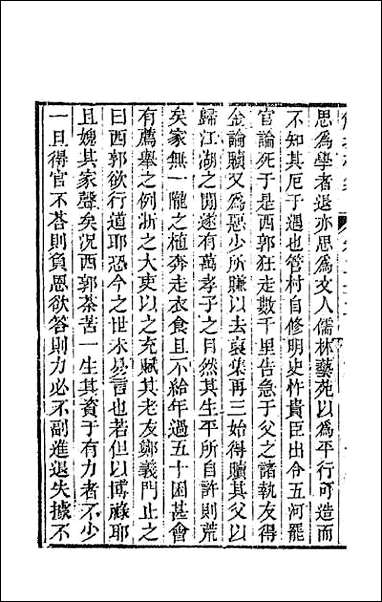 思為學者退亦思為文人儒林藝苑以為平行可造而
不知其厄于遇也管村自修明史忤貴臣出令五河罷
官論死于是西郭狂走數千里告急于父之諸執友得
金論贖又為惡少所賺以去哀集再三始得贖其父以
歸江湖之間遂有萬孝子之目然其生平所自許則荒
矣家無一隴之植奔走衣食且不給年過五十困甚會
有薦舉之例浙之大吏以之充賦其老友鄭義門止之
曰西郭欲行道耶恐今之世未易言也若但以博祿耶
且媿其家聲矣況西郭茶苦一生其資于有力者不少
一旦得官不荅則負恩欲答則力必不副進退失據不